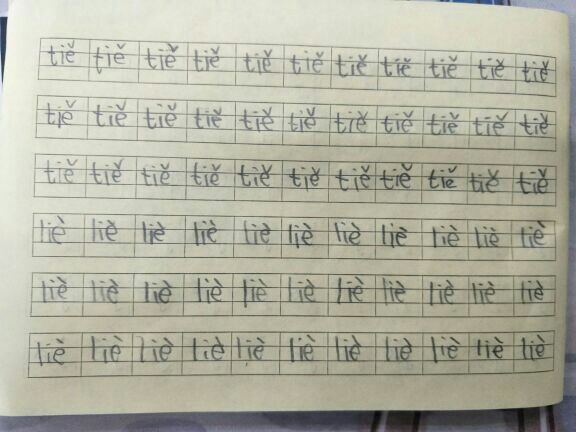 tiě tiě tiě tiě tiě tiě tiě tiě tiě tiě tiě
tiě tiě tiě tiě tiě tiě tiě tiě tiě tiě tiě
tiě tiě tiě tiě tiě tiě tiě tiě tiě tiě tiě
liè liè liè liè liè liè liè liè liè liè liè
liè liè liè liè liè liè liè liè liè liè liè
liè liè liè liè liè liè liè liè liè liè liè